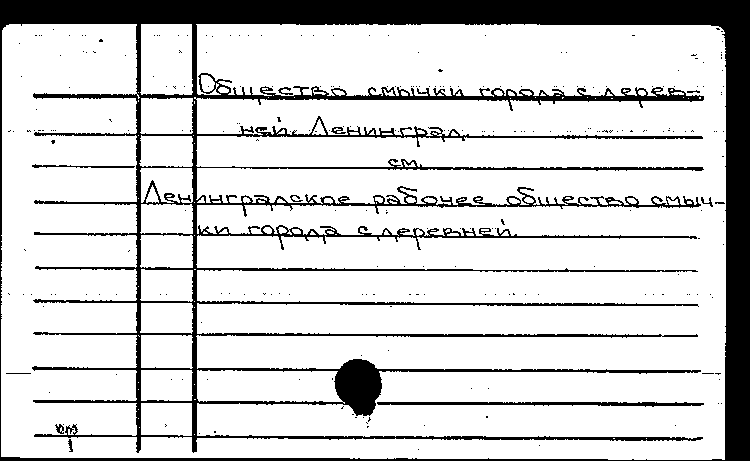 Общество смычки города с дерев-
ней. Ленинград.
см.
Ленинградское рабочее общество смыч-
ки города с деревней.